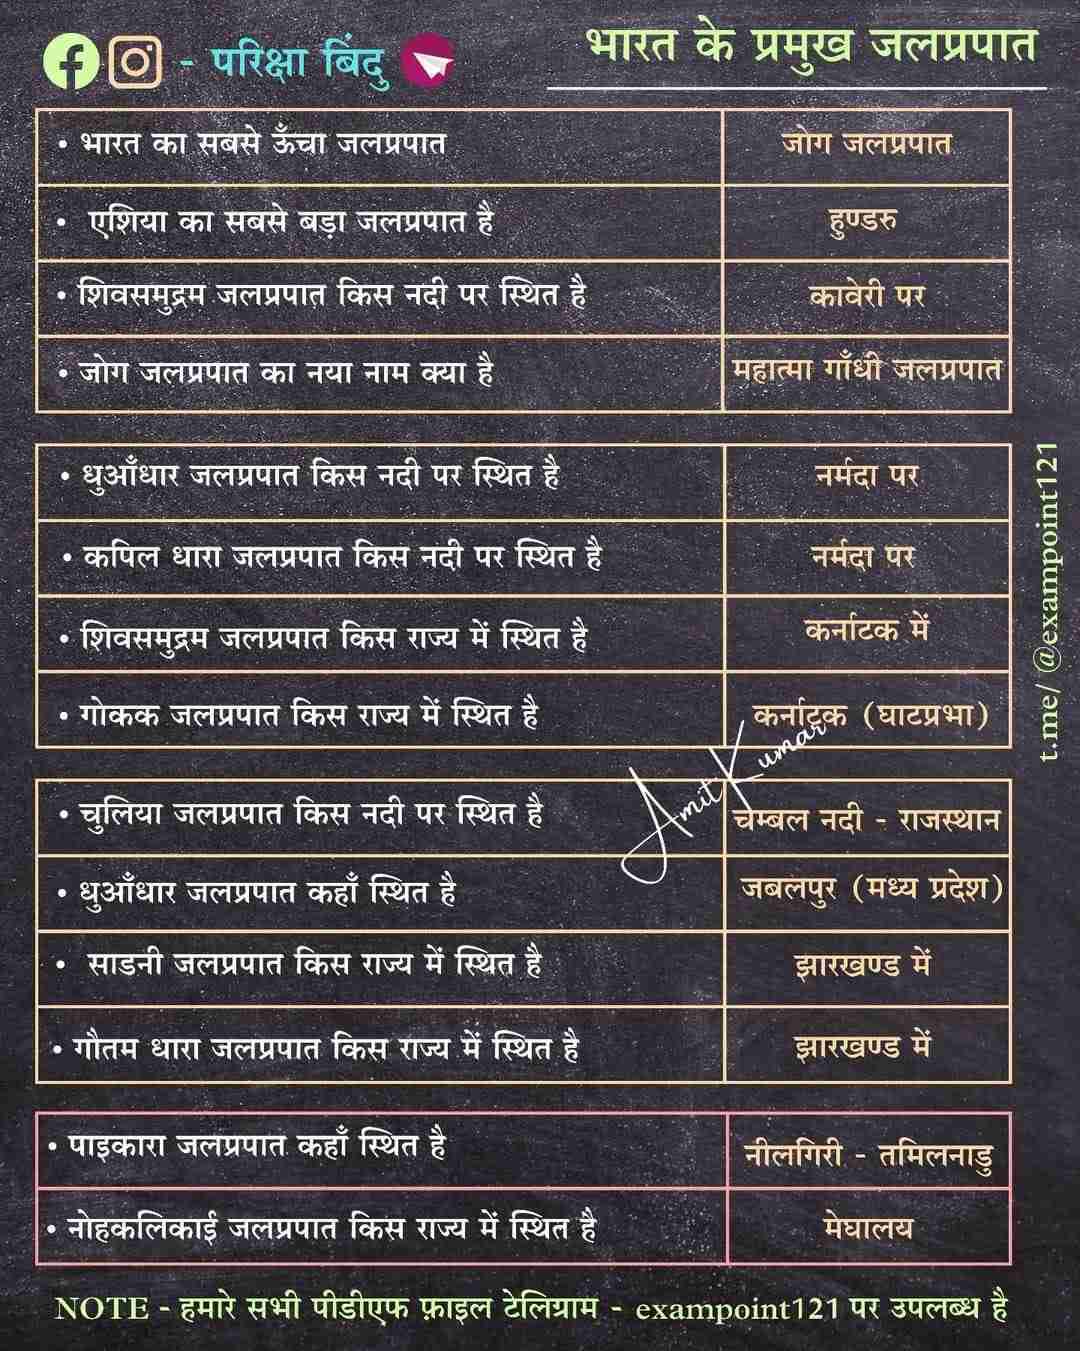 - परिक्षा बिंदु
भारत के प्रमुख जलप्रपात
• भारत का सबसे ऊँचा जलप्रपात
जोग जलप्रपात
• एशिया का सबसे बड़ा जलप्रपात है
हुण्डरु
• शिवसमुद्रम जलप्रपात किस नदी पर स्थित है
कावेरी पर
• जोग जलप्रपात का नया नाम क्या है
महात्मा गाँधी जलप्रपात
• धुआँधार जलप्रपात किस नदी पर स्थित है
नर्मदा पर
• कपिल धारा जलप्रपात किस नदी पर स्थित है
नर्मदा पर
• शिवसमुद्रम जलप्रपात किस राज्य में स्थित है
कर्नाटक में
• गोकक जलप्रपात किस राज्य में स्थित है
कर्नाटक (घाटप्रभा)
• चुलिया जलप्रपात किस नदी पर स्थित है
चम्बल नदी - राजस्थान
• धुआँधार जलप्रपात कहाँ स्थित है
जबलपुर (मध्य प्रदेश)
• साडनी जलप्रपात किस राज्य में स्थित है
झारखण्ड में
• गौतम धारा जलप्रपात किस राज्य में स्थित है
झारखण्ड में
• पाइकारा जलप्रपात कहाँ स्थित है
नीलगिरी - तमिलनाडु
• नोहकलिकाई जलप्रपात किस राज्य में स्थित है
मेघालय
Amit Kumar
t.me/ @exampoint121
NOTE - हमारे सभी पीडीएफ फ़ाइल टेलिग्राम - exampoint121 पर उपलब्ध है